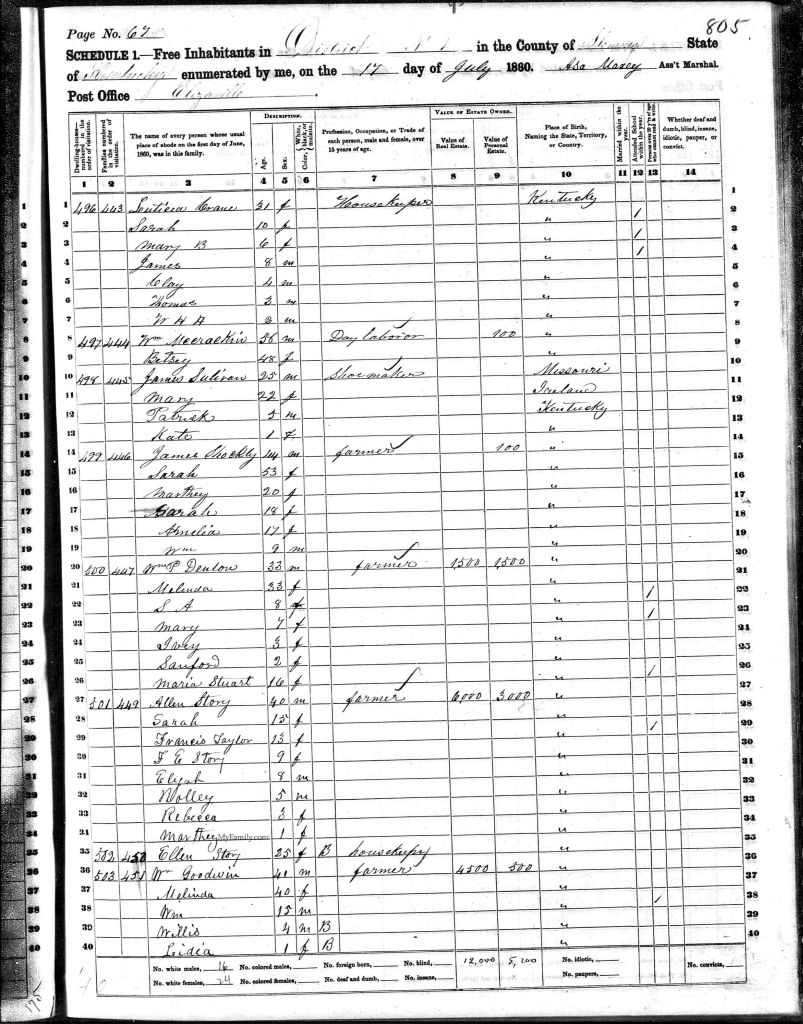 Page No. 67
805
SCHEDULE 1.—Free Inhabitants in District No 1 in the County of State
of Kentucky enumerated by me, on the 17 day of July 1860. Asa Maxey Ass't Marshal.
Post Office
DESCRIPTION. VALUE OF ESTATE OWNED.
Dwelling-houses—numbered in the order of visitation. Families numbered in the order of visitation. The name of every person whose usual place of abode on the first day of June, 1860, was in this family. Age. Sex. Color, White, black, or mulatto. Profession, Occupation, or Trade of each person, male and female, over 15 years of age. Value of Real Estate. Value of Personal Estate. Place of Birth, Naming the State, Territory, or Country. Married within the year. Attended School within the year. Persons over 20 y'rs of age who cannot read & write. Whether deaf and dumb, blind, insane, idiotic, pauper, or convict.
1 2 3 4 5 6 7 8 9 10 11 12 13 14
1 496 443 Leuticia Crane 31 f Housekeeper Kentucky 1
2 Sarah 10 f " 1 2
3 Mary B 6 f " 1 3
4 James 8 m " 1 4
5 Clay 4 m " 5
6 Thomas 3 m " 6
7 W H A m " 7
8 497 444 Wm Mccrackin 56 m Day laboror 100 " 8
9 Betsey 48 f " 9
10 498 445 James Sulivan 25 m Shoemaker Missouri 10
11 Mary 22 f Ireland 11
12 Patrick 5 m Kentucky 12
13 Kate 1 f " 13
14 499 446 James Shockly 44 m farmer 100 " 14
15 Sarah 53 f " 15
16 Marthey 20 f " 16
17 Sarah 18 f " 17
18 Amelia 17 f " 18
19 Wm 9 m " 19
20 500 447 Wm P Denton 33 m farmer 1,500 1,500 " 20
21 Melinda 33 f " 21
22 S A 8 f " 1 22
23 Mary 7 f " 1 23
24 Ivey 3 f " 24
25 Sanford 2 f " 25
26 Maria Stuart 16 f " 1 26
27 501 449 Allen Story 40 m farmer 6,000 3,000 " 27
28 Sarah 15 f " 28
29 Francis Taylor 13 f " 1 29
30 F E Story 9 f " 30
31 8 m " 31
32 Nolley 5 m " 32
33 Rebecca 3 f " 33
34 Marthey MyFamily.com 1 f " 34
35 502 450 Ellen Story 25 f B housekeepy " 35
36 503 451 Wm Goodwin 41 m farmer 4500 500 " 36
37 Melinda 40 f " 37
38 Wm 15 m " 1 38
39 Willis 4 m B " 39
40 Lidia 1 f B " 40
No. white males, 16 No. colored males, No. foreign born, No. blind, 12,000 5,200 No. idiotic, No. convicts,
No. white females, 24 No. colored females, No. deaf and dumb, No. insane, No. paupers,